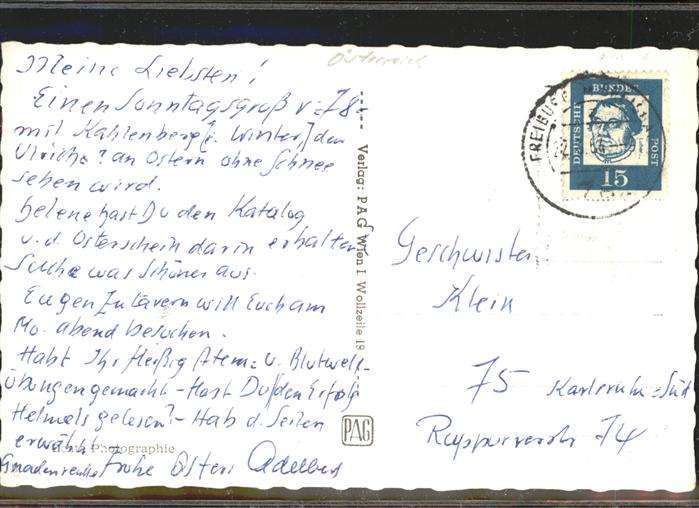 Österreich
Meine Liebsten!
Einen Sonntagsgruß v.
mit Kahlenberg i. Winter, den
Ulrike? an Ostern ohne Schnee
sehen wird.
Helene hast Du den Katalog
u. d. Osterschein darin erhalten
suche was schönes aus.
Eugen will Euch am
Mo. abend besuchen.
Habt Ihr fleißig Atem- u. Blutwell-
übungen gemacht - Hast Du den Erfolg
Helmels gelesen? - Hab d. Seiten
erwähnt
Photographie
Frohe Ostern Adelbert
Verlag: PAG Wien I Wollzeile 19
PAG
FREIBURG
DEUTSCHE
BUNDES
POST
15
Geschwister
Klein
75 Karlsruhe-Süd